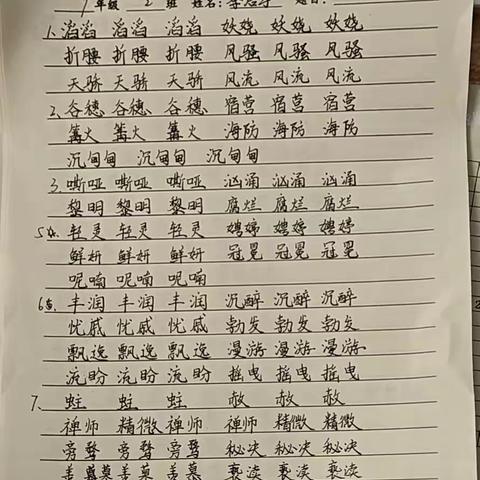 年级 2 班 姓名:
1、滔滔 滔滔 滔滔 妖娆 妖娆 妖娆
折腰 折腰 折腰 风骚 风骚 风骚
天骄 天骄 天骄 风流 风流 风流
2、谷穗 谷穗 谷穗 宿营 宿营 宿营
篝火 篝火 篝火 海防 海防 海防
沉甸甸 沉甸甸 沉甸甸
3、嘶哑 嘶哑 嘶哑 汹涌 汹涌 汹涌
黎明 黎明 黎明 腐烂 腐烂 腐烂
5、轻灵 轻灵 轻灵 娉婷 娉婷 娉婷
鲜妍 鲜妍 鲜妍 冠冕 冠冕 冠冕
呢喃 呢喃 呢喃
6、丰润 丰润 丰润 沉醉 沉醉 沉醉
忧戚 忧戚 忧戚 勃发 勃发 勃发
飘逸 飘逸 飘逸 漫游 漫游 漫游
流盼 流盼 流盼 摇曳 摇曳 摇曳
7、蛀 蛀 蛀 赦 赦 赦
禅师 精微 禅师 禅师 精微 精微
旁骛 旁骛 旁骛 秘决 秘决 秘决
羡慕 羡慕 羡慕 亵渎 亵渎 亵渎